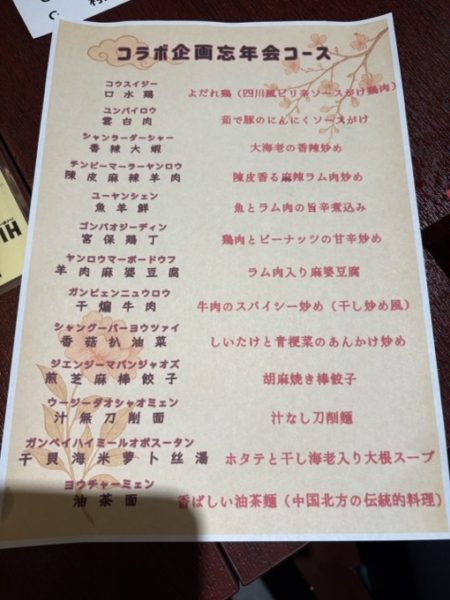 コラボ企画忘年会コース
コウスイジー
口水鶏 よだれ鶏(四川風ピリ辛ソースがけ鶏肉)
ユンパイロウ
雲白肉 茹で豚のにんにくソースがけ
シャンラーダーシャー
香辣大蝦 大海老の香辣炒め
チンピーマーラーヤンロウ
陳皮麻辣羊肉 陳皮香る麻辣ラム肉炒め
ユーヤンシェン
魚羊鮮 魚とラム肉の旨辛煮込み
ゴンバオジーディン
宮保鶏丁 鶏肉とピーナッツの甘辛炒め
ヤンロウマーボードウフ
羊肉麻婆豆腐 ラム肉入り麻婆豆腐
ガンビェンニュウロウ
干煸牛肉 牛肉のスパイシー炒め(干し炒め風)
シャングーバーヨウツァイ
香菇扒油菜 しいたけと青梗菜のあんかけ炒め
ジエンジーマバンジャオズ
煎芝麻棒餃子 胡麻焼き棒餃子
ウージーダオシャオミェン
汁無刀削面 汁なし刀削麺
ガンベイハイミールオボスータン
干貝海米萝卜丝湯 ホタテと干し海老入り大根スープ
ヨウチャーミェン
油茶面 香ばしい油茶麺(中国北方の伝統的料理)